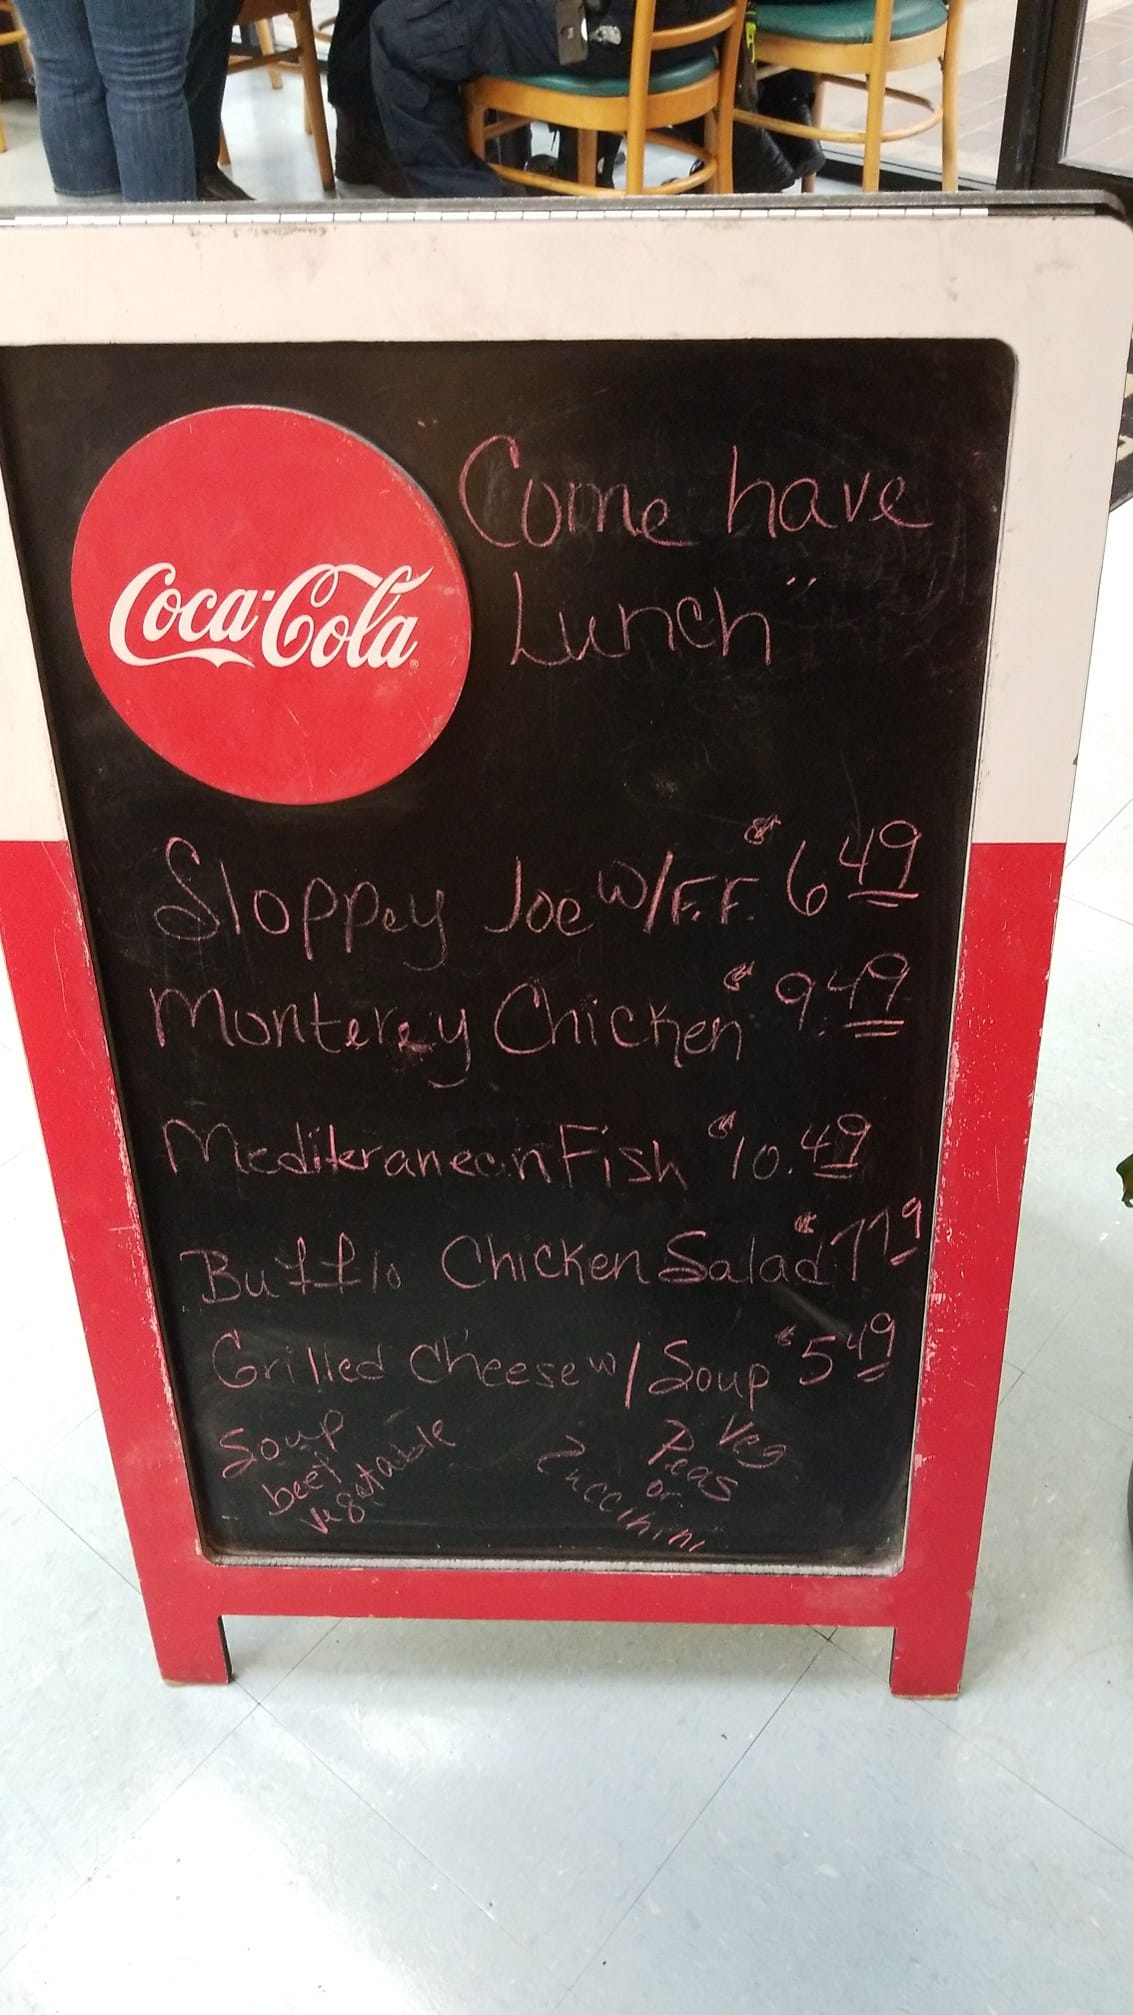 Coca-Cola
Come have
Lunch"
Sloppey Joe w/F.F. $6.49
Monterey Chicken $9.49
Mediteranean Fish $10.49
Bufflo Chicken Salad $7.79
Grilled Cheese w/ Soup $5.49
Soup
beef
vegatable
Veg
Peas
or
Zuccihini